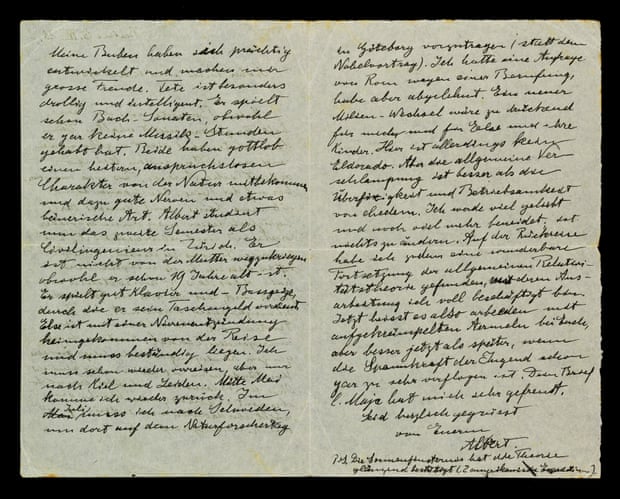 Meine Buben haben sich prächtig
entwickelt und machen mir
grosse Freude. Tete ist besonders
drollig und intelligent. Er spielt
schon Bach-Sonaten, obwohl
er gar keine Musik-Stunden
gehabt hat. Beide haben gottlob
einen heitern, anspruchslosen
Charakter von der Natur mitbekommen
und dazu gute Nerven und etwas
bäuerische Art. Albert studiert
nun das zweite Semester als
Civilingenieur in Zürich. Er
ist nicht von der Mutter wegzukriegen
obwohl er schon 19 Jahre alt ist.
Er spielt gut Klavier und Bassgeige,
durch die er sein Taschengeld verdient
Else ist mit einer Nierenentzündung
heimgekommen von der Reise
und muss beständig liegen. Ich
muss schon wieder verreisen, aber nur
nach Kiel und Leiden. Mitte Mai
komme ich wieder zurück. Im
Juli muss ich nach Schweden,
um dort auf dem Naturforschertag
in Göteborg vorzutragen (statt dem
Nobelvortrag). Ich hatte eine Anfrage
von Rom wegen einer Berufung,
habe aber abgelehnt. Ein neuer
Milieu-Wechsel wäre zu drückend
für mich und für Else und ihre
Kinder. Hier ist allerdings kein
Eldorado. Aber die allgemeine Ver
schlampung ist besser als die
und Betriebsamkeit
von ehedem. Ich werde viel geliebt
und noch viel mehr beneidet, ist
nichts zu ändern. Auf der Rückreise
habe ich eine wunderbare
Fortsetzung der allgemeinen Relativi
tätstheorie gefunden, mit deren Aus-
arbeitung ich voll beschäftigt bin.
Jetzt heisst es also arbeiten mit
aufgekrempelten Aermeln bei
aber besser jetzt als später, wenn
die Spannkraft der Jugend schon
gar zu sehr verflogen ist. Dein Brief
l. Maja hat mich sehr gefreut.
Seid herzlich gegrüsst
von Euerm
Albert.
P.S. Die Sonnenfinsternis hat die Theorie
glänzend bestätigt (2 amerikanische Expeditionen).